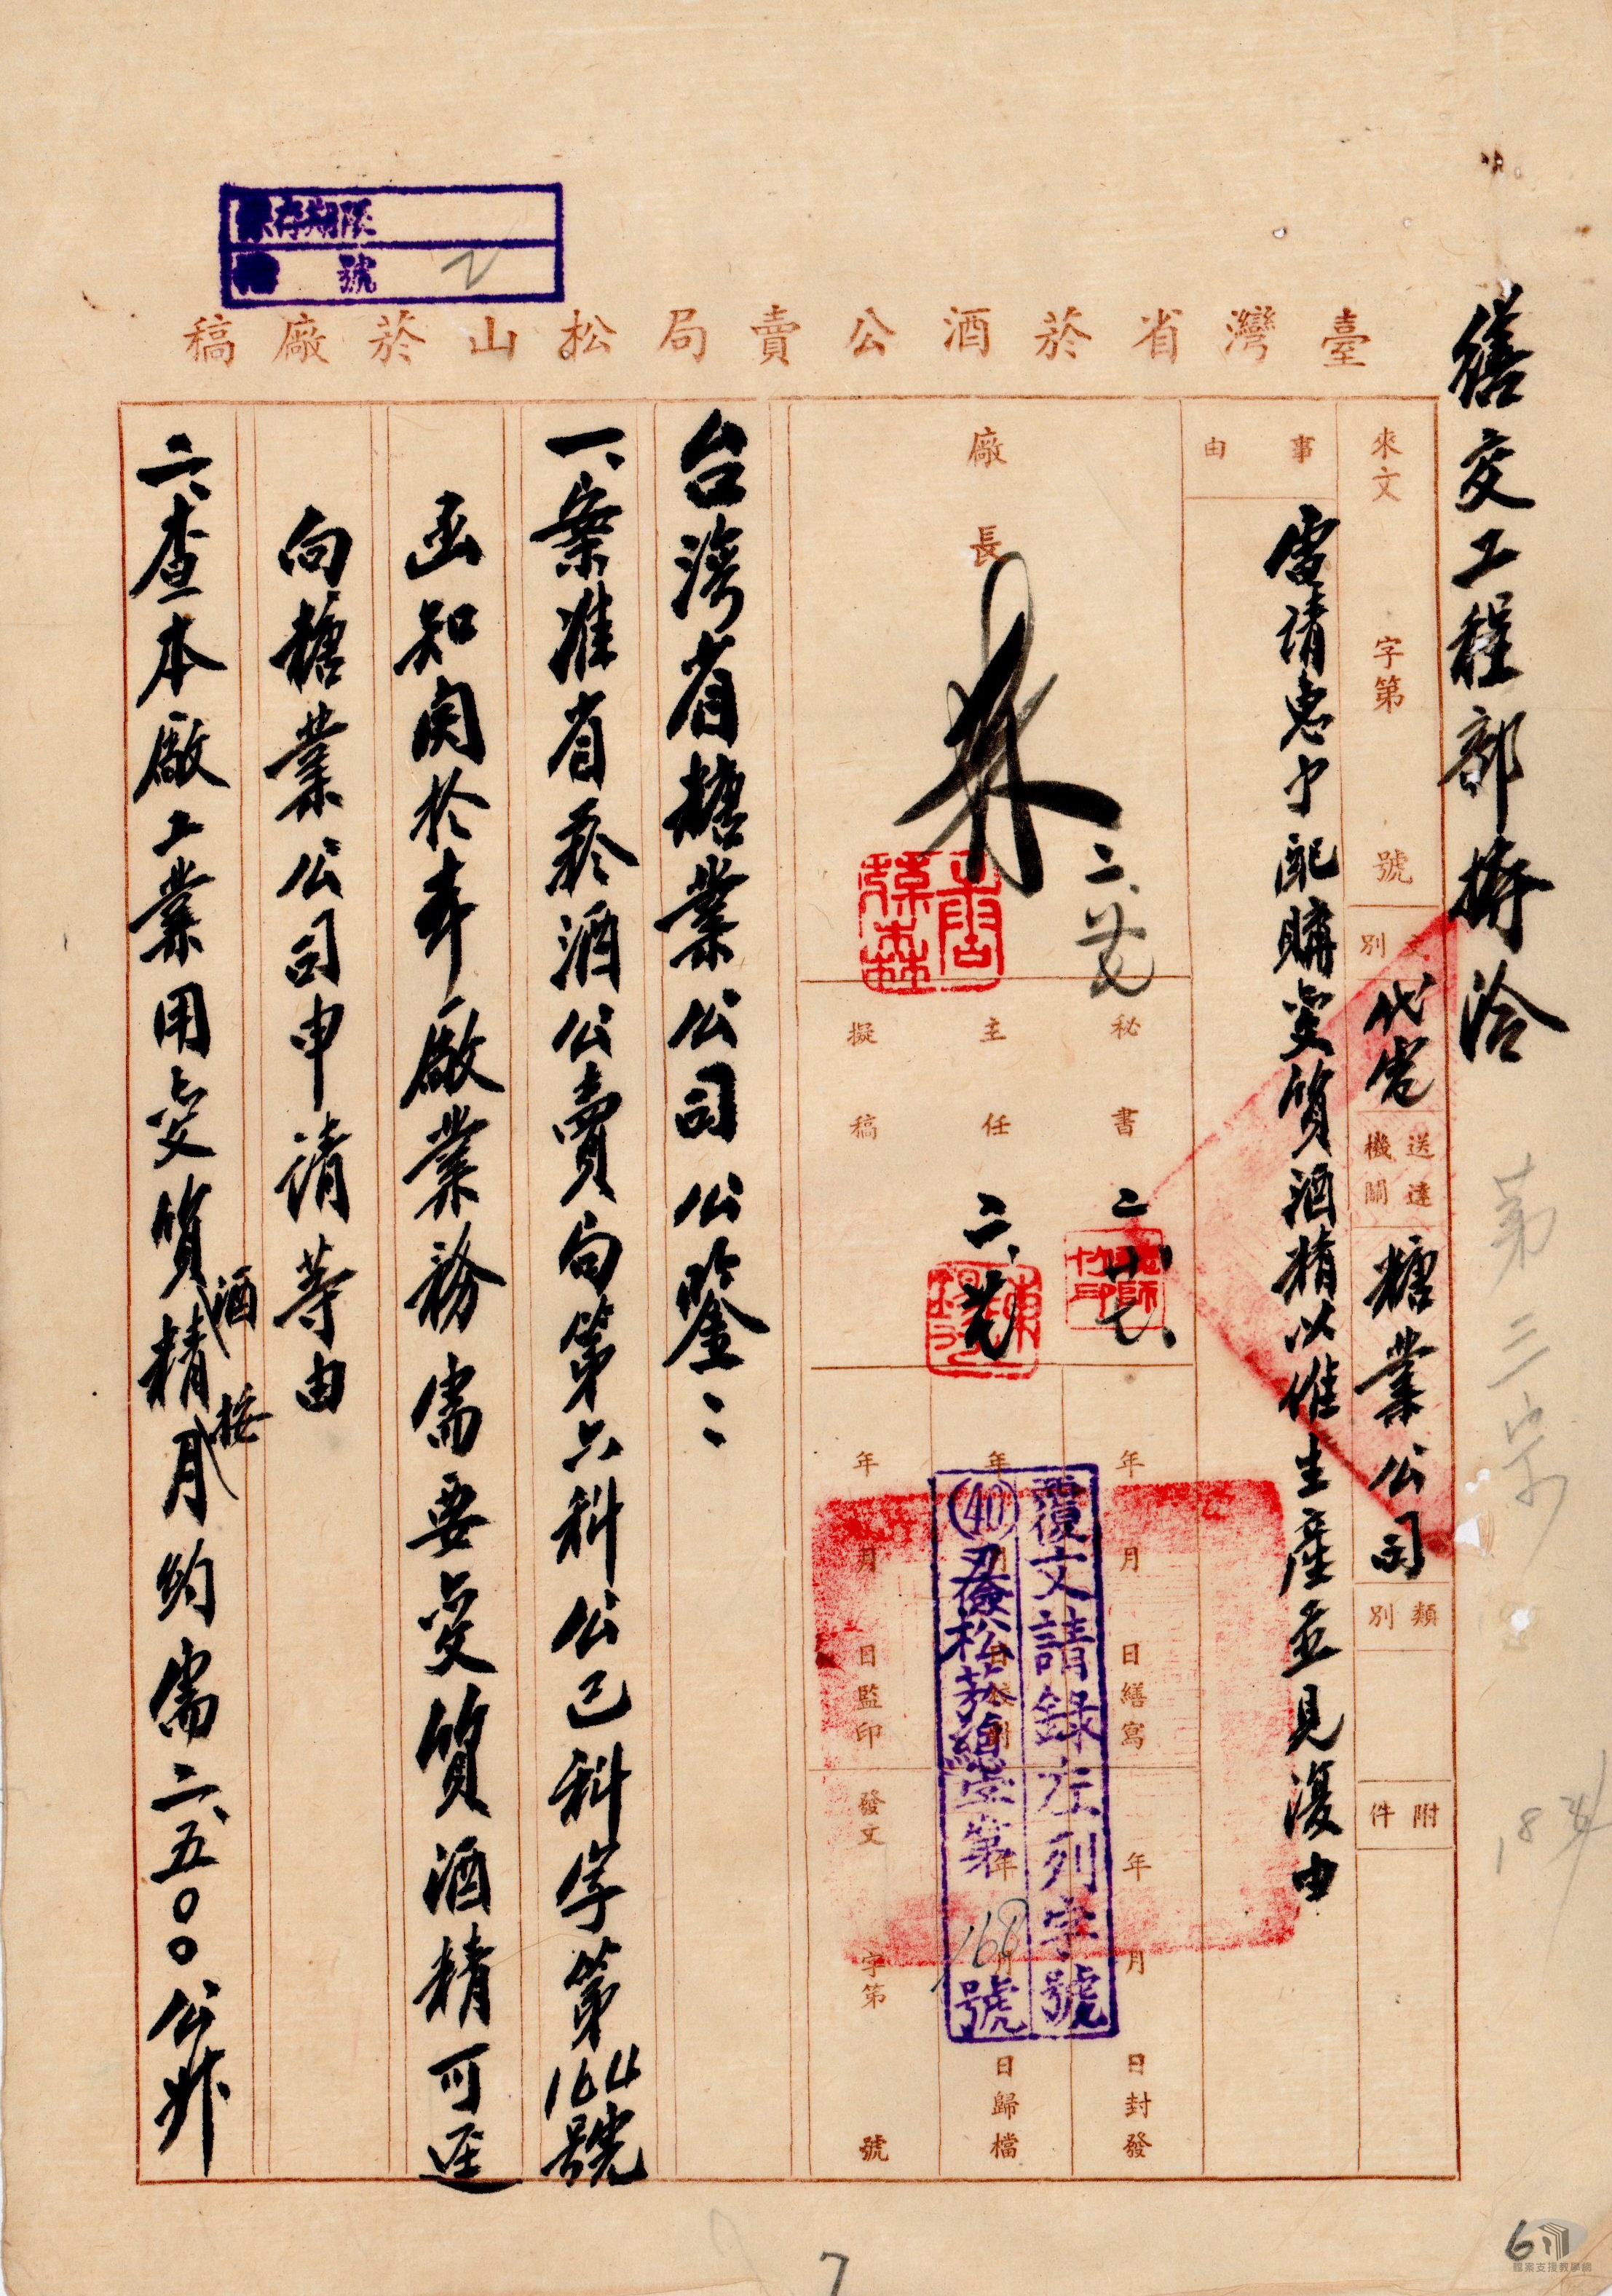 保存期限
檔號
臺灣省菸酒公賣局松山菸廠稿
繕交工程部擲洽
來文 字第 號
文別 代電
送達機關 糖業公司
類別
附件
事由
電請惠予配購變質酒精以維生產並見復由
廠長
林
二、
秘書
主任
擬稿
年 月 日繕寫
年 月 日校對
年 月 日監印
年 月 日封發
年 月 日歸檔
發文 字第 號
覆文請錄左列字號
(40)丑儉松菸總壹第168號
台湾省糖業公司公鑒：
一、案准省菸酒公賣局第六科公己科字第164號
函知関於本廠業務需要變質酒精可逕
向糖業公司申請等由
二、查本廠工業用變質酒精按月約需二、五〇〇公升
第三宗
7
6
檔案支援教學網